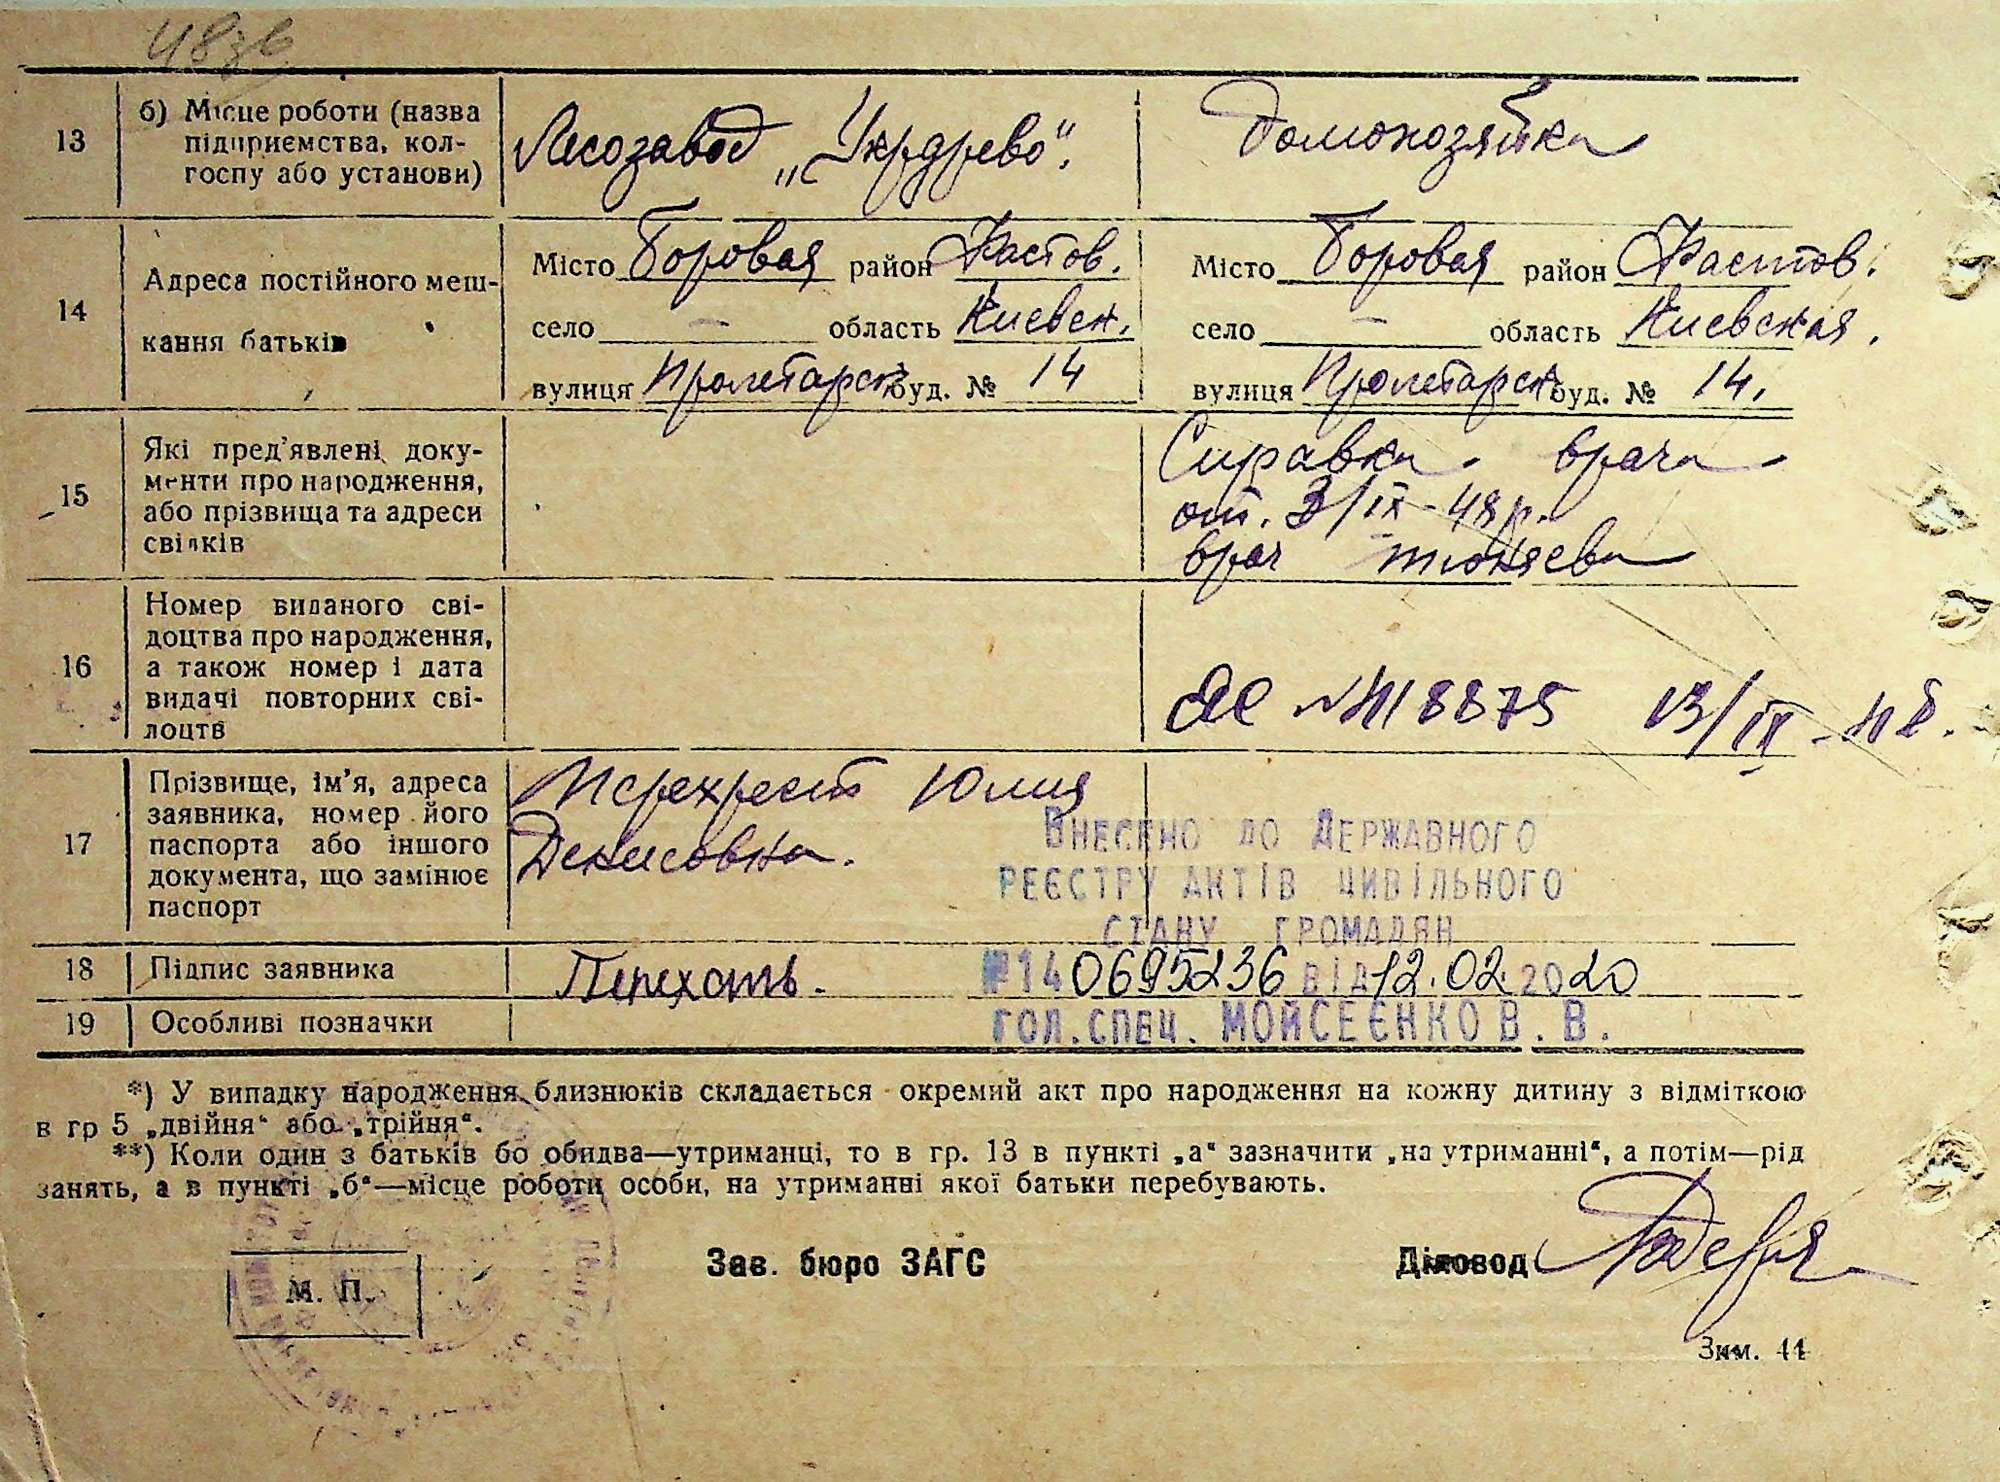 13
б) Місце роботи (назва
підприємства, кол-
госпу або установи)
Лесозавод „Укрдрево".
Домохозяйка
14
Адреса постійного меш-
кання батьків
Місто Боровая район Фастов.
село — область Киевск.
вулиця Пролетарск буд. № 14
Місто Боровая район Фастов.
село — область Киевская.
вулиця Пролетарск буд. № 14.
15
Які пред'явлені доку-
менти про народження,
або прізвища та адреси
свідків
Справка врача
от. 3/IX-48р.
врач
16
Номер виданого сві-
доцтва про народження,
а також номер і дата
видачі повторних сві-
доцтв
13/IX-48.
17
Прізвище, ім'я, адреса
заявника, номер його
паспорта або іншого
документа, що замінює
паспорт
Перехрест Юлия
Денисовна.
Внесено до Державного
реєстру актів цивільного
стану громадян
№140695236 від 12.02.2020
гол.спец. Мойсеєнко В.В.
18
Підпис заявника
19
Особливі позначки
*) У випадку народження близнюків складається окремий акт про народження на кожну дитину з відміткою
в гр 5 „двійня“ або „трійня“.
**) Коли один з батьків бо обидва—утриманці, то в гр. 13 в пункті „а“ зазначити „на утриманні“, а потім—рід
занять, а в пункті „б“—місце роботи особи, на утриманні якої батьки перебувають.
М. П.
Зав. бюро ЗАГС
Діловод
Зим. 44